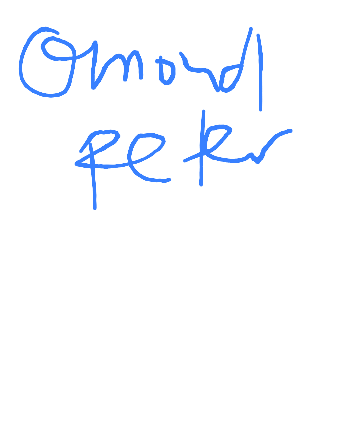 Omondi
Peter